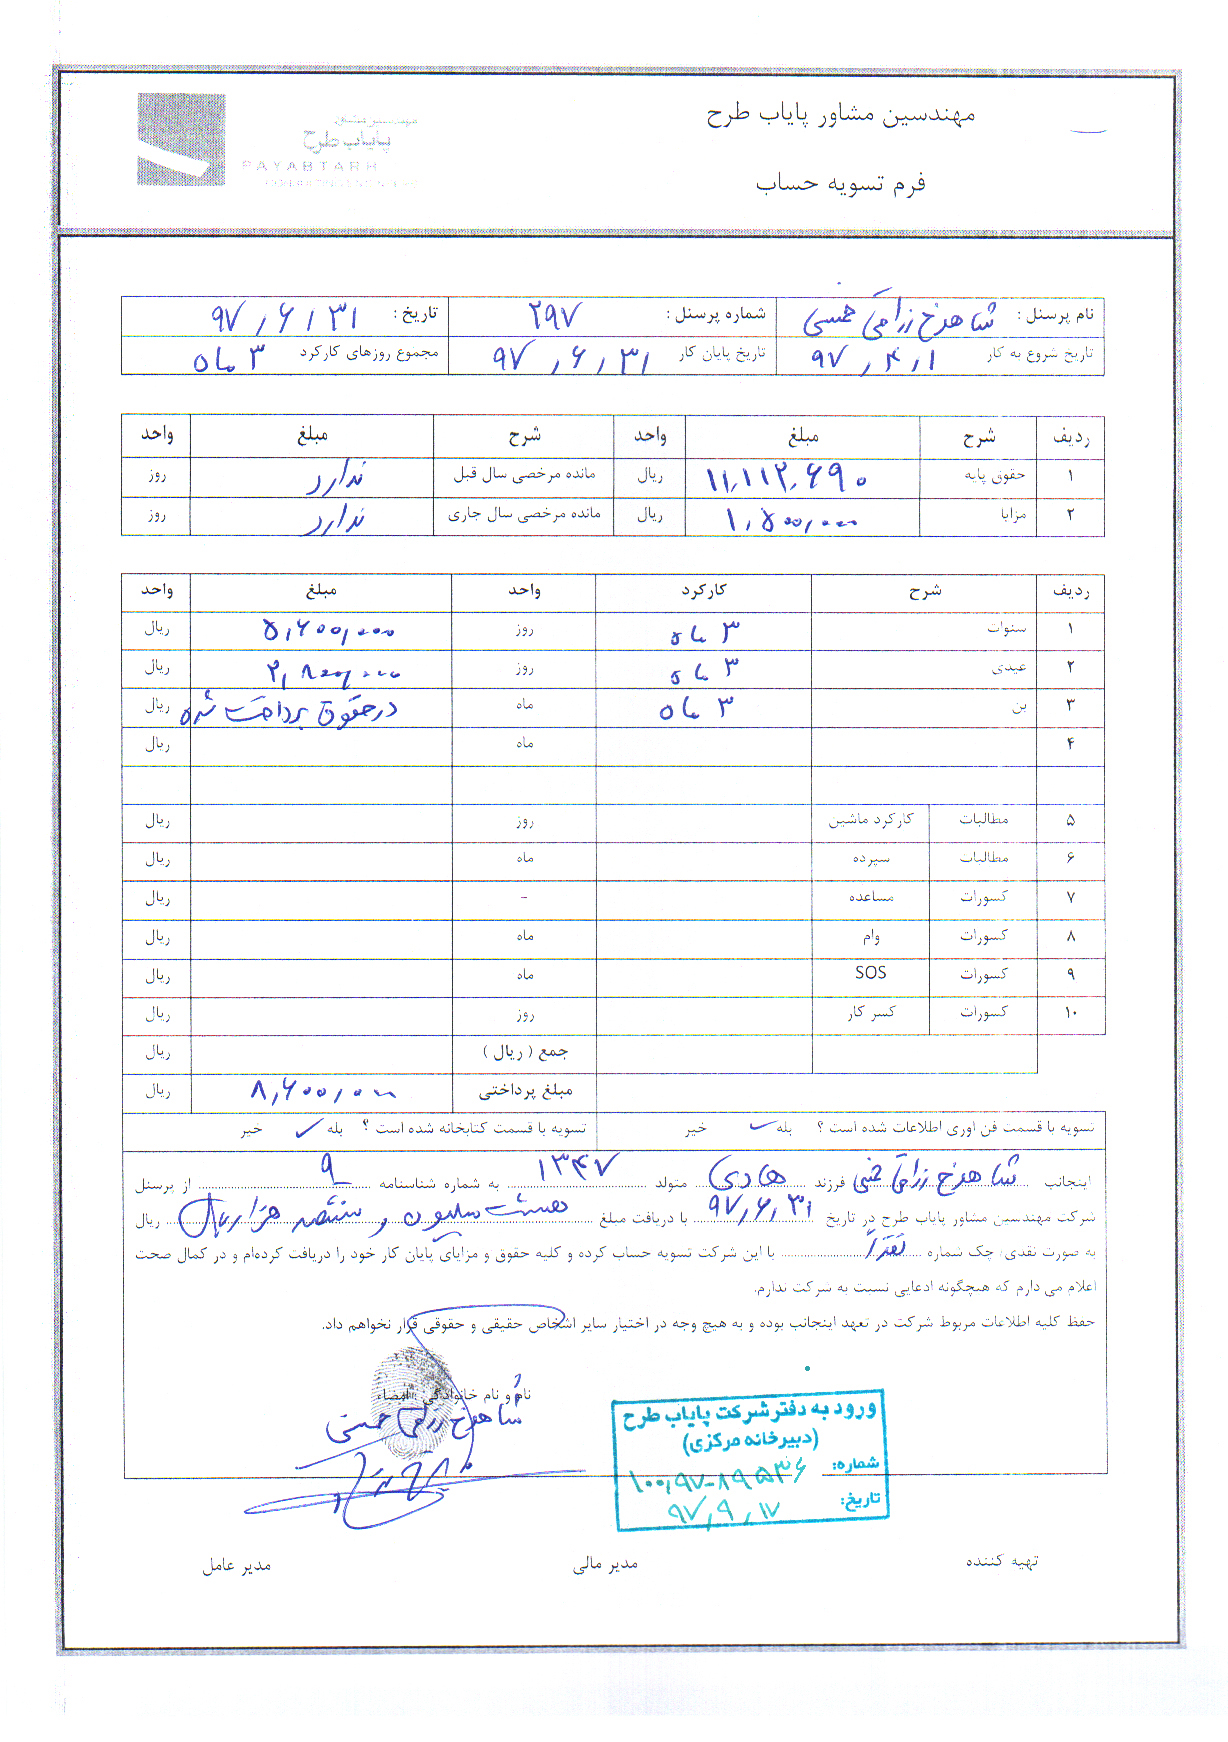 مهندسین مشاور پایاب طرح
فرم تسویه حساب
مهندسین مشاور
پایاب طرح
PAYABTARH
نام پرسنل : شاهرخ زراقی حسنی شماره پرسنل : ۲۹۷ تاریخ : ۹۷/۶/۳۱
تاریخ شروع به کار ۹۷/۴/۱ تاریخ پایان کار ۹۷/۶/۳۱ مجموع روزهای کارکرد ۳ ماه
ردیف شرح مبلغ واحد شرح مبلغ واحد
۱ حقوق پایه ۱۱,۱۱۲,۶۹۰ ریال مانده مرخصی سال قبل ندارد روز
۲ مزایا ۱,۵۰۰,۰۰۰ ریال مانده مرخصی سال جاری ندارد روز
ردیف شرح کارکرد واحد مبلغ واحد
۱ سنوات ۳ ماه روز ۵,۶۰۰,۰۰۰ ریال
۲ عیدی ۳ ماه روز ۲,۸۰۰,۰۰۰ ریال
۳ بن ۳ ماه ماه در حقوق پرداخت شده ریال
۴ ماه ریال
۵ مطالبات کارکرد ماشین روز ریال
۶ مطالبات سپرده ماه ریال
۷ کسورات مساعده - ریال
۸ کسورات وام ماه ریال
۹ کسورات SOS ماه ریال
۱۰ کسورات کسر کار روز ریال
جمع ( ریال ) ریال
مبلغ پرداختی ۸,۶۰۰,۰۰۰ ریال
تسویه با قسمت فن اوری اطلاعات شده است ؟ بله ✓ خیر تسویه با قسمت کتابخانه شده است ؟ بله ✓ خیر
اینجانب شاهرخ زراقی حسنی فرزند هادی متولد ۱۳۴۷ به شماره شناسنامه ۹ از پرسنل
شرکت مهندسین مشاور پایاب طرح در تاریخ ۹۷/۶/۳۱ با دریافت مبلغ هشت میلیون و ششصد هزار ریال ریال
به صورت نقدی/ چک شماره نقداً با این شرکت تسویه حساب کرده و کلیه حقوق و مزایای پایان کار خود را دریافت کرده‌ام و در کمال صحت
اعلام می دارم که هیچگونه ادعایی نسبت به شرکت ندارم.
حفظ کلیه اطلاعات مربوط شرکت در تعهد اینجانب بوده و به هیچ وجه در اختیار سایر اشخاص حقیقی و حقوقی قرار نخواهم داد.
نام و نام خانوادگی / امضاء
شاهرخ زراقی حسنی
ورود به دفتر شرکت پایاب طرح
(دبیرخانه مرکزی)
شماره: ۱۰۰/۹۷-۸۹۵۳۶
تاریخ: ۹۷/۹/۱۷
تهیه کننده مدیر مالی مدیر عامل